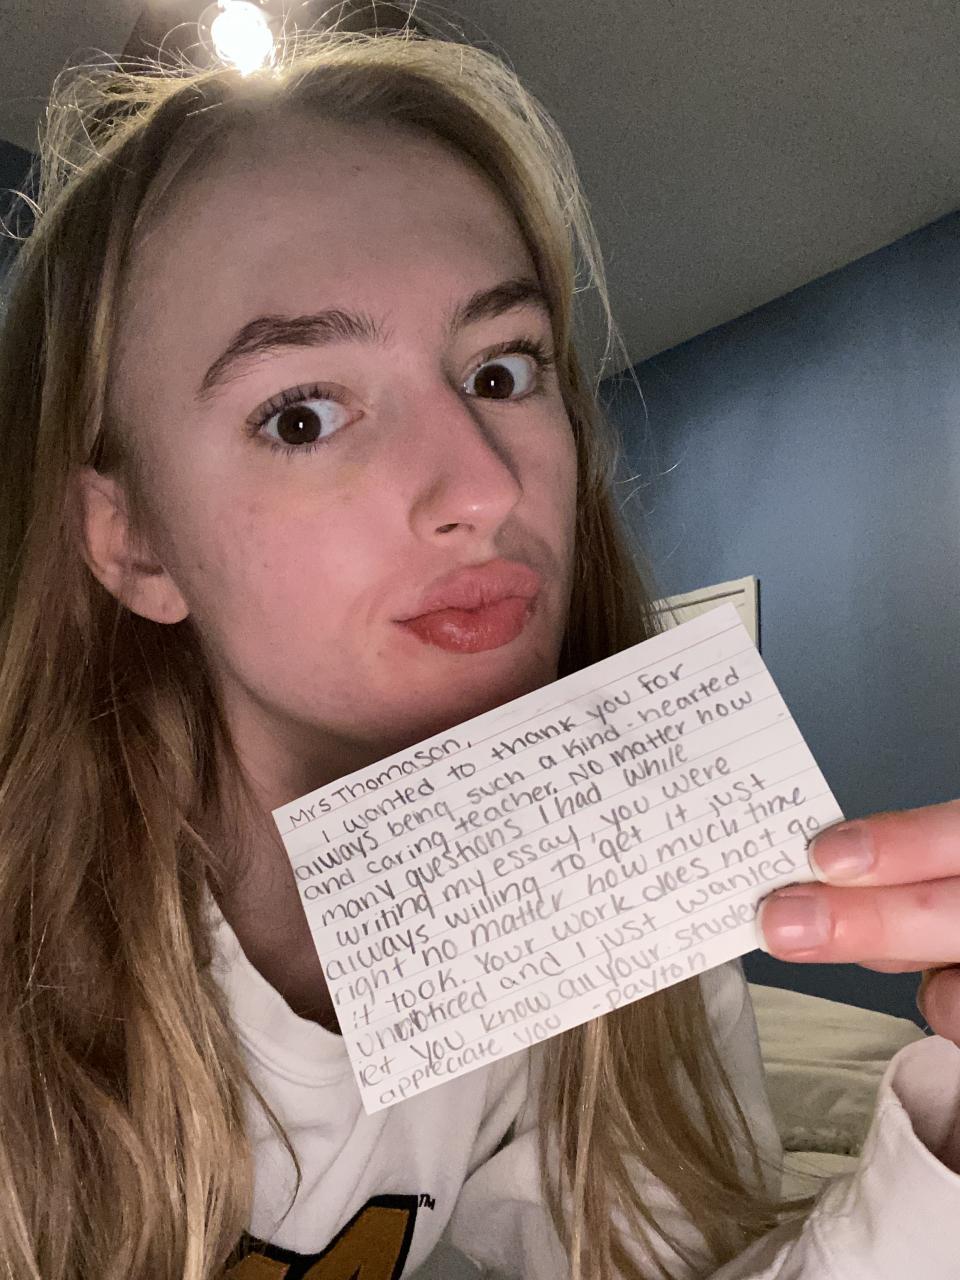 Mrs Thomason,
I wanted to thank you for
always being such a kind-hearted
and caring teacher. No matter how
many questions I had while
writing my essay, you were
always willing to get it just
right no matter how much time
it took. Your work does not go
unnoticed and I just wanted
let you know all your studen
appreciate you -payton
TM